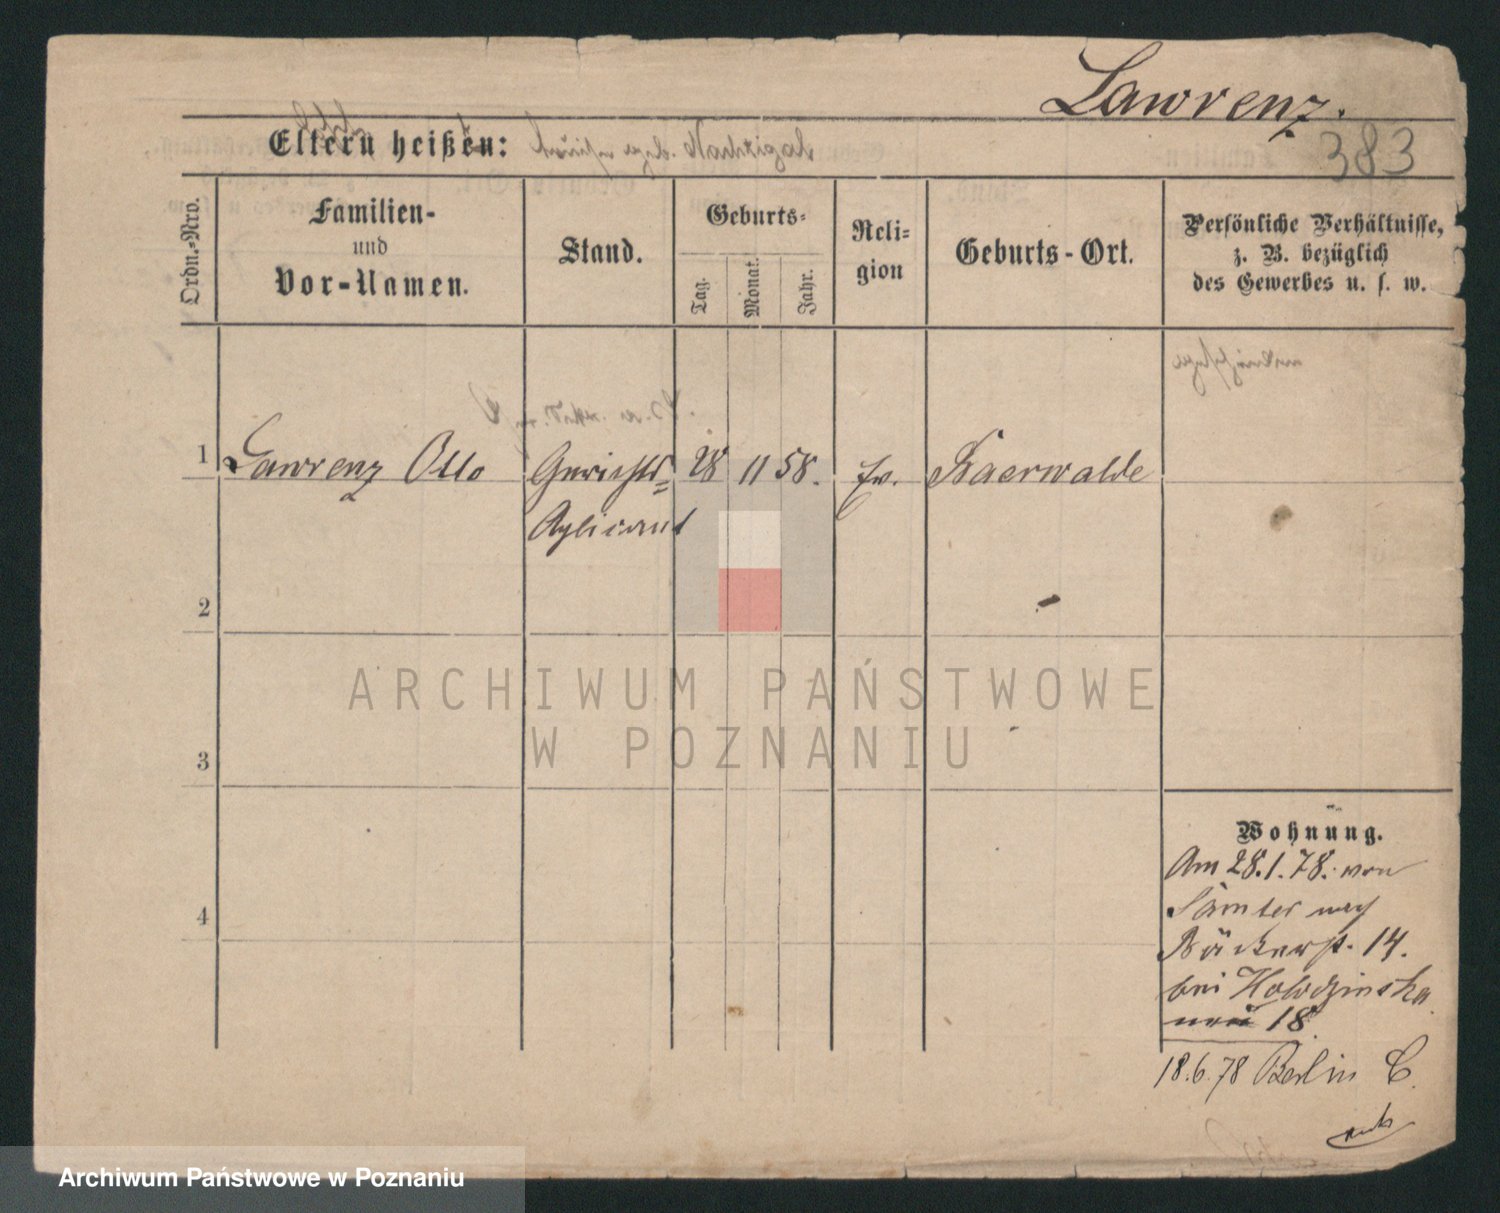 Lawrenz.
383
Eltern heißen:
Ordn.=Nro.
Familien-
und
Vor-Namen.
Stand.
Geburts=
Tag.
Monat.
Jahr.
Reli=
gion
Geburts-Ort.
Persönliche Verhältnisse,
z. B. bezüglich
des Gewerbes u. s. w.
1 Lawrenz Otto Gerichts= 28 11 58. Ev. Baerwalde
Aplicant
2
ARCHIWUM PAŃSTWOWE
W POZNANIU
3
Wohnung.
Am 28.1.78. von
Samter nach
4
Bäckerst. 14.
bei
neu 18
18.6.78 Berlin C.
Archiwum Państwowe w Poznaniu